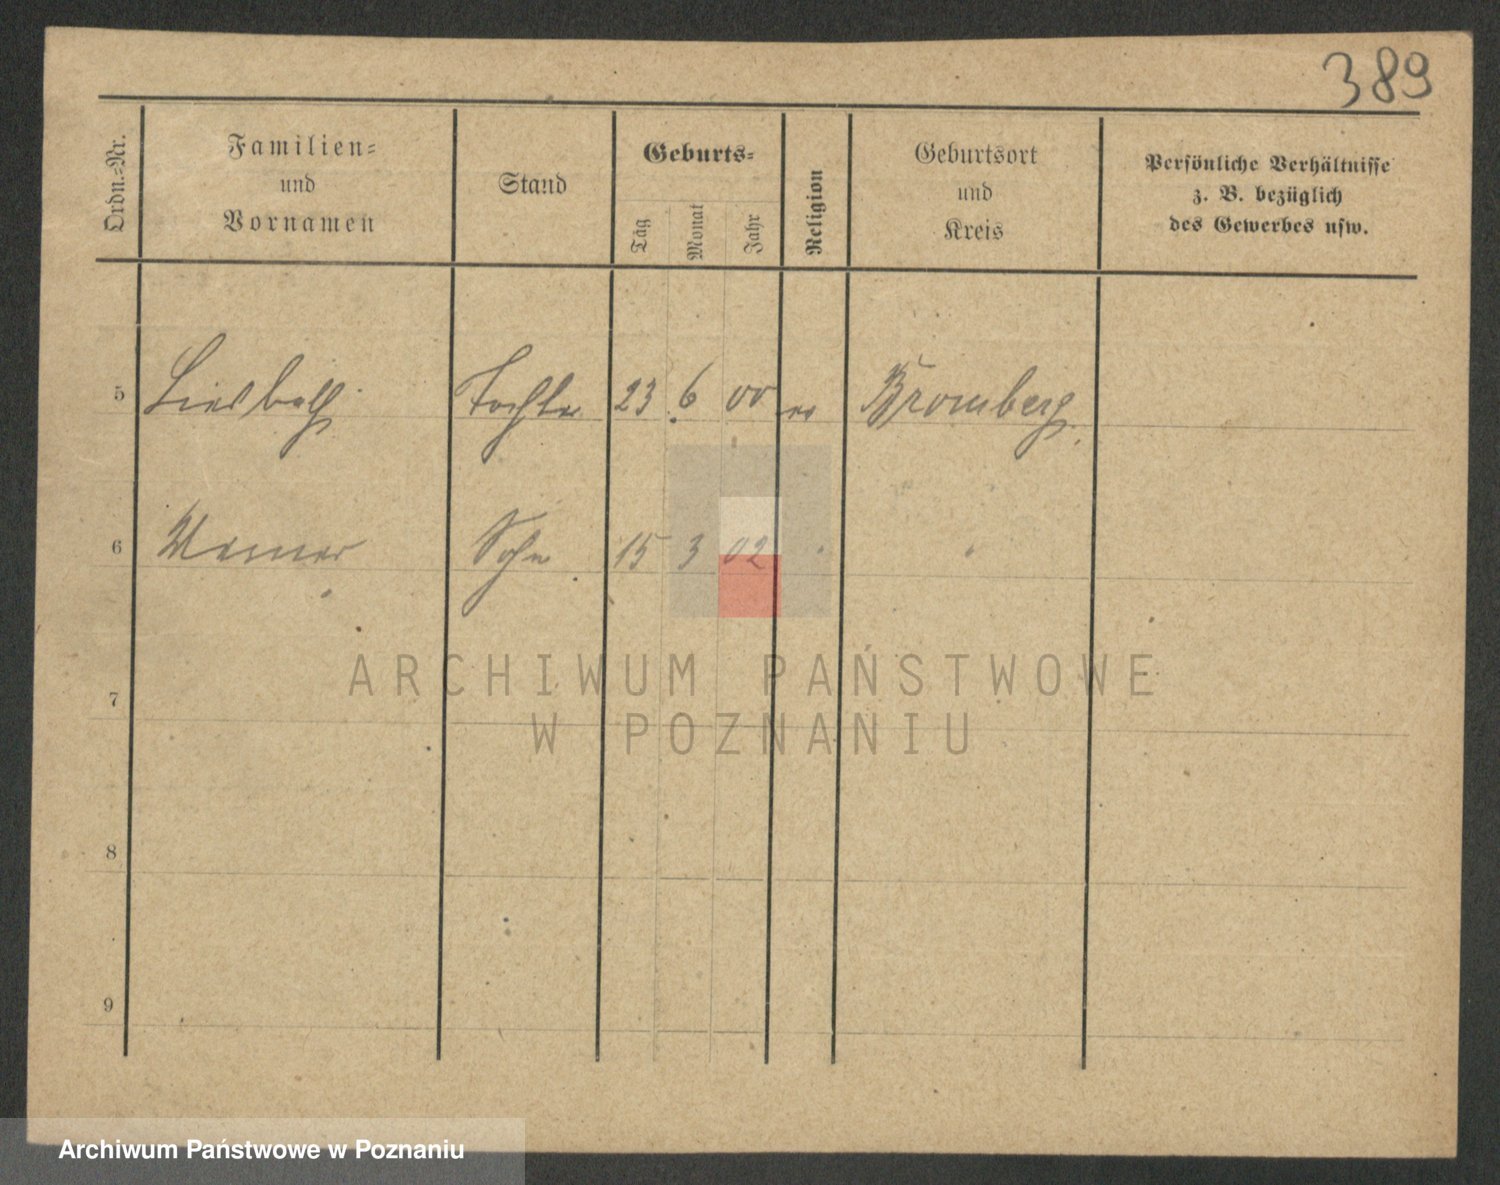 389
Ordn.-Nr.
Familien-
und
Vornamen
Stand
Geburts-
Tag
Monat
Jahr
Religion
Geburtsort
und
Kreis
Persönliche Verhältnisse
z. B. bezüglich
des Gewerbes usw.
5 Liesbeth Tochter 23 6 00 ev Bromberg
6 Werner Sohn 15 3 02 " "
7
8
9
ARCHIWUM PAŃSTWOWE
W POZNANIU
Archiwum Państwowe w Poznaniu